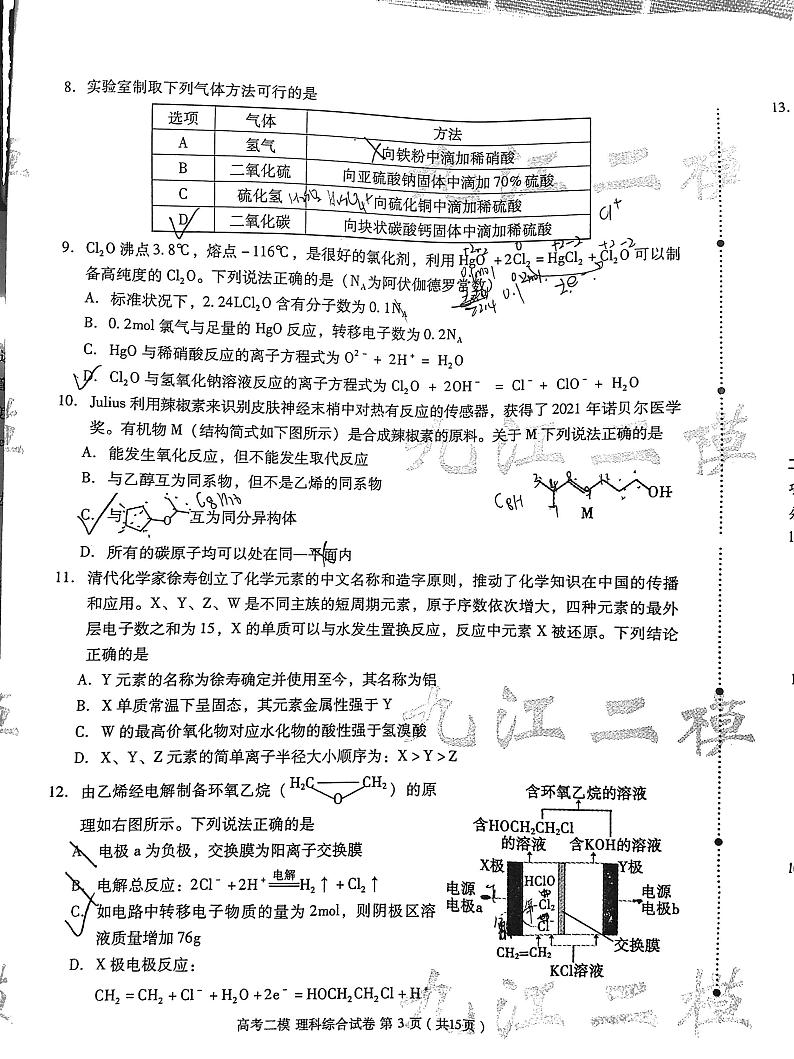 8. 实验室制取下列气体方法可行的是
选项 气体 方法
A 氢气 向铁粉中滴加稀硝酸
B 二氧化硫 向亚硫酸钠固体中滴加70%硫酸
C 硫化氢 向硫化铜中滴加稀硫酸
D 二氧化碳 向块状碳酸钙固体中滴加稀硫酸
Cl⁺
9. Cl₂O 沸点3.8℃，熔点-116℃，是很好的氯化剂，利用 HgO + 2Cl₂ = HgCl₂ + Cl₂O 可以制
备高纯度的 Cl₂O。下列说法正确的是（N_A为阿伏伽德罗常数）
A. 标准状况下，2.24LCl₂O 含有分子数为 0.1N_A
B. 0.2mol 氯气与足量的 HgO 反应，转移电子数为 0.2N_A
C. HgO 与稀硝酸反应的离子方程式为 O²⁻ + 2H⁺ = H₂O
D. Cl₂O 与氢氧化钠溶液反应的离子方程式为 Cl₂O + 2OH⁻ = Cl⁻ + ClO⁻ + H₂O
10. Julius 利用辣椒素来识别皮肤神经末梢中对热有反应的传感器，获得了 2021 年诺贝尔医学
奖。有机物 M（结构简式如下图所示）是合成辣椒素的原料。关于 M 下列说法正确的是
A. 能发生氧化反应，但不能发生取代反应
B. 与乙醇互为同系物，但不是乙烯的同系物
C. 与 O 互为同分异构体
OH
M
D. 所有的碳原子均可以处在同一平面内
11. 清代化学家徐寿创立了化学元素的中文名称和造字原则，推动了化学知识在中国的传播
和应用。X、Y、Z、W 是不同主族的短周期元素，原子序数依次增大，四种元素的最外
层电子数之和为 15，X 的单质可以与水发生置换反应，反应中元素 X 被还原。下列结论
正确的是
A. Y 元素的名称为徐寿确定并使用至今，其名称为铝
B. X 单质常温下呈固态，其元素金属性强于 Y
C. W 的最高价氧化物对应水化物的酸性强于氢溴酸
D. X、Y、Z 元素的简单离子半径大小顺序为：X>Y>Z
12. 由乙烯经电解制备环氧乙烷（H₂C CH₂ O）的原
理如右图所示。下列说法正确的是
A. 电极 a 为负极，交换膜为阳离子交换膜
B. 电解总反应：2Cl⁻ +2H⁺ 电解 H₂↑ + Cl₂↑
C. 如电路中转移电子物质的量为 2mol，则阴极区溶
液质量增加 76g
D. X 极电极反应：
CH₂ = CH₂ + Cl⁻ + H₂O + 2e⁻ = HOCH₂CH₂Cl + H⁺
含环氧乙烷的溶液
含HOCH₂CH₂Cl
的溶液 含KOH的溶液
X极 Y极
HClO
Cl₂
Cl⁻
电源
电极a
电源
电极b
CH₂=CH₂
交换膜
KCl溶液
高考二模 理科综合试卷 第 3 页（共15页）
13.
九江二模
九江二模
九江二模
九江二模